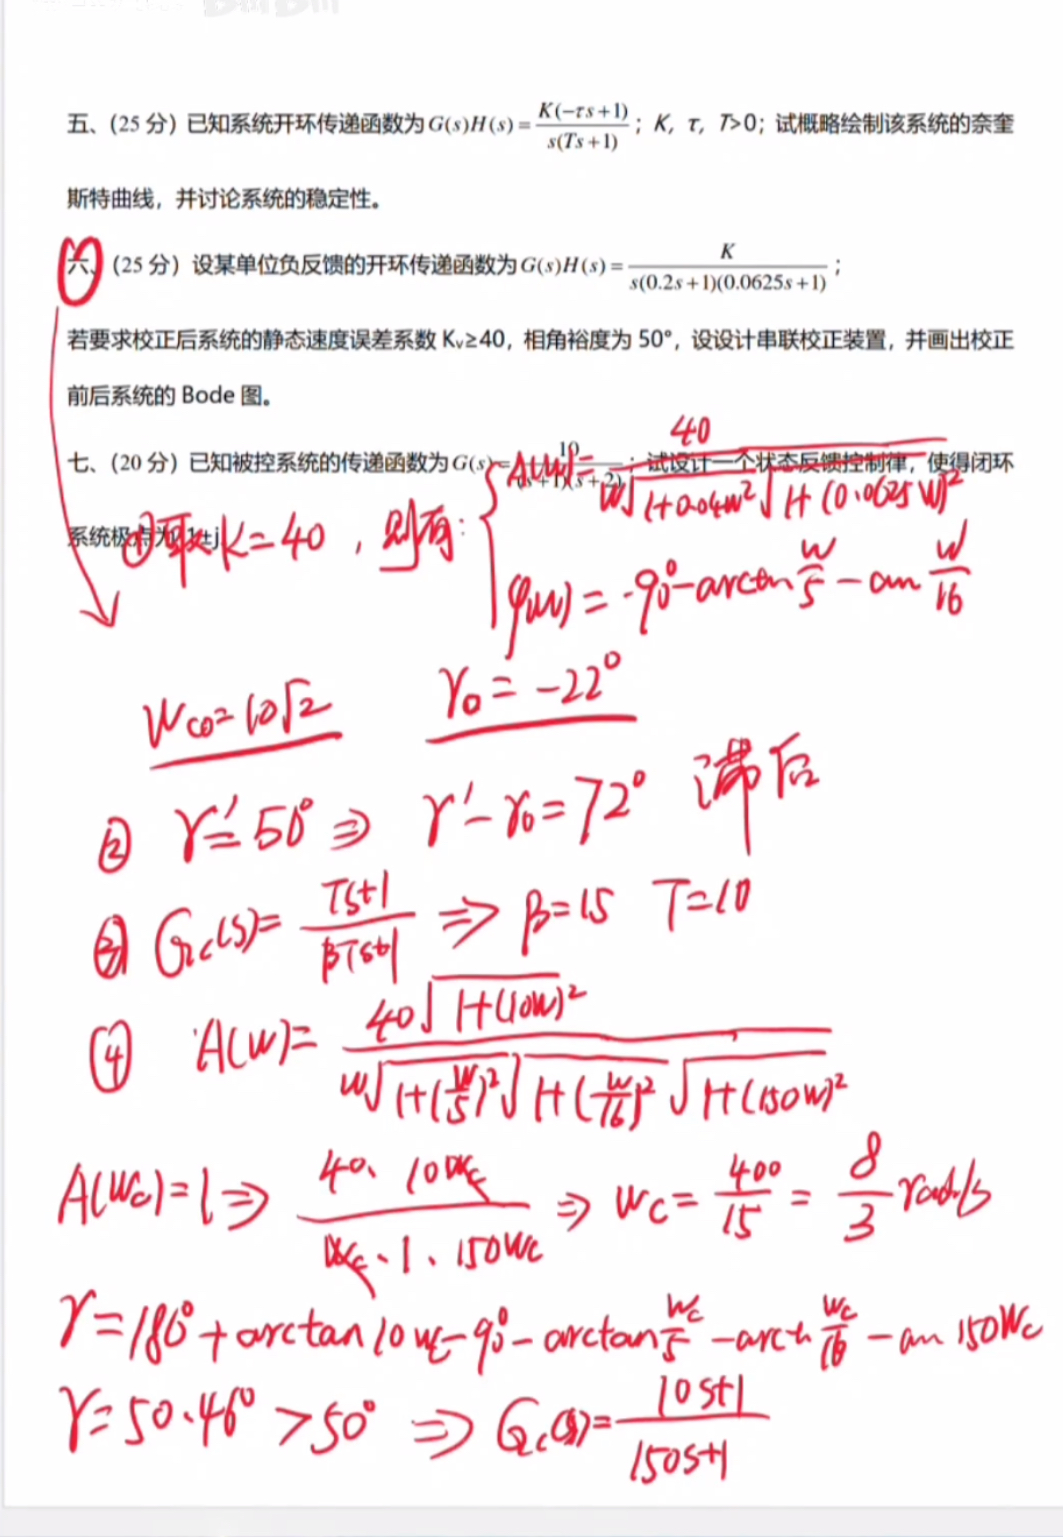 五、(25 分) 已知系统开环传递函数为 G(s)H(s) = K(−τs+1) / s(Ts+1) ; K, τ, T>0; 试概略绘制该系统的奈奎
斯特曲线，并讨论系统的稳定性。
六、(25 分) 设某单位负反馈的开环传递函数为 G(s)H(s) = K / s(0.2s+1)(0.0625s+1) ;
若要求校正后系统的静态速度误差系数 Kv≥40，相角裕度为 50°，设设计串联校正装置，并画出校正
前后系统的 Bode 图。
七、(20 分) 已知被控系统的传递函数为 G(s) = 10 / (s+1)(s+2) ; 试设计一个状态反馈控制律，使得闭环
系统极点为 -1±j
① 取 K=40，则有:
A(w) = 40 / w√1+0.04w² √1+(0.0625w)²
φ(w) = -90°-arctan w/5 - an w/16
Wc0=10√2 γ0=-22°
② γ'=50° ⇒ γ'-γ0=72° 滞后
③ Gc(s)= Ts+1 / βTs+1 ⇒ β=15 T=10
④ A(w)= 40√1+(10w)² / w√1+(w/5)² √1+(w/16)² √1+(150w)²
A(Wc)=1 ⇒ 40·10Wc / Wc·1·150Wc ⇒ Wc= 400/15 = 8/3 rad/s
γ=180°+arctan10Wc-90°-arctan Wc/5 -arctan Wc/16 - an 150Wc
γ=50.46° >50° ⇒ Gc(s)= 10s+1 / 150s+1